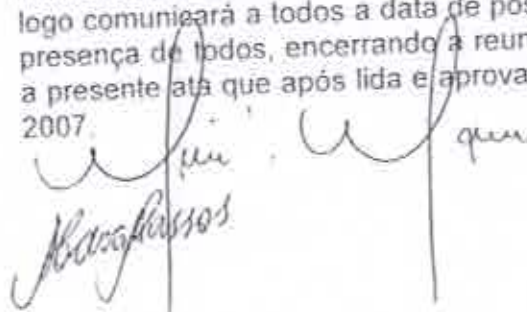 logo comunicará a todos a data de pos
presença de todos, encerrando a reun
a presente ata que após lida e aprova
2007.